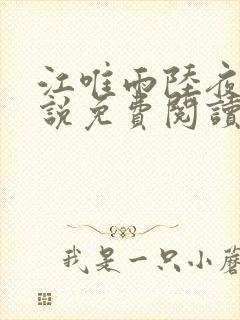 江唯雨陸夜
說免費閱讀
我是一只小蘑